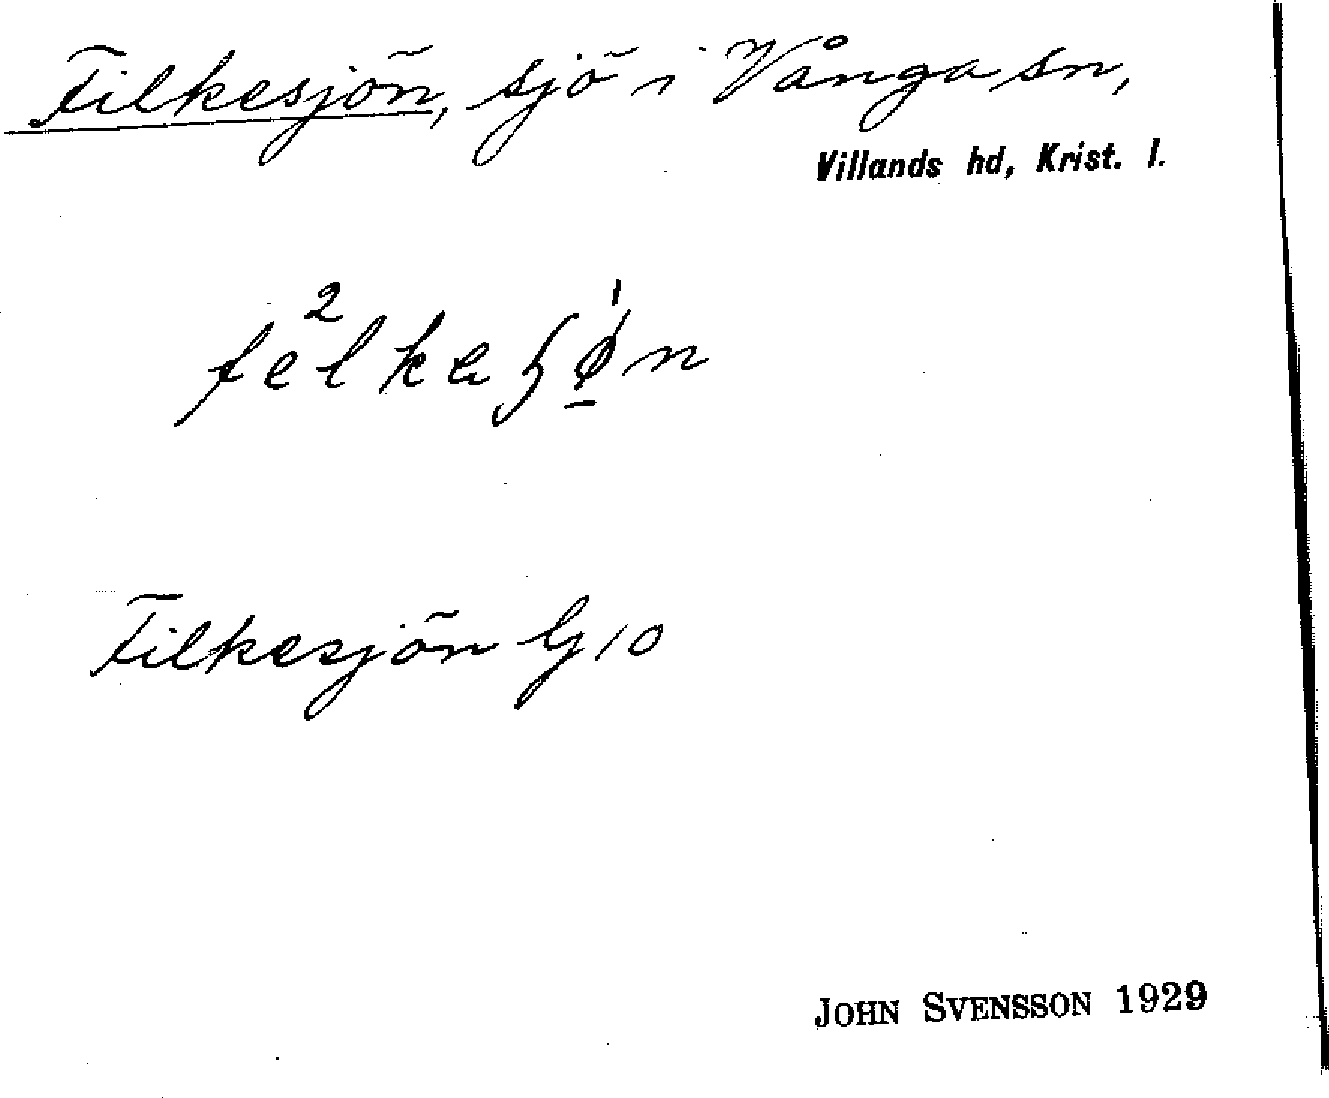 Filkesjön, sjö i Vånga sn,
Villands hd, Krist. l.
Filkesjön G10
JOHN SVENSSON 1929